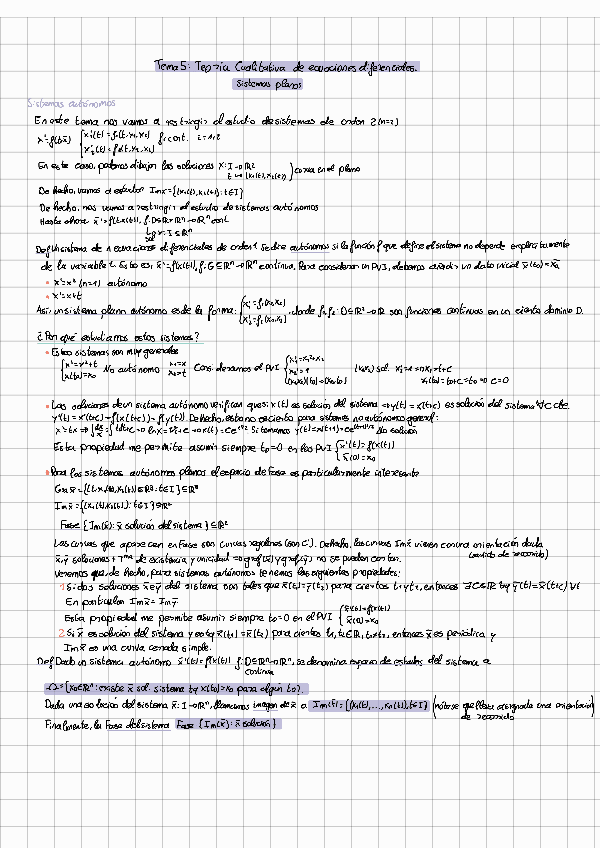 Tema 5: Teoría Cualitativa de ecuaciones diferenciales.
Sistemas planos
Sistemas autónomos
En este tema nos vamos a restringir al estudio de sistemas de orden 2 (n=2)
x'=f(t,x) { x₁'(t)=f₁(t,x₁,x₂) f_i cont. i=1,2
x₂'(t)=f₂(t,x₁,x₂)
En este caso, podemos dibujar las soluciones x: I→ℝ² ) curva en el plano
t→(x₁(t),x₂(t))
De hecho, vamos a estudiar Imx={(x₁(t),x₂(t)): t∈I}
De hecho, nos vamos a restringir al estudio de sistemas autónomos
Hasta ahora x'=f(t,x(t)), f: D⊆ℝ×ℝⁿ→ℝⁿ cont
sol x: I⊆ℝ→ℝⁿ
Def Un sistema de n ecuaciones diferenciales de orden 1 se dice autónomo si la función f que define el sistema no depende explícitamente
de la variable t. Esto es, x'=f(x(t)), f: G⊆ℝⁿ→ℝⁿ continua. Para considerar un PVI, debemos añadir un dato inicial x(t₀)=x₀.
• x'=x² (n=1) autónomo
• x'=x+t
Así, un sistema plano autónomo es de la forma: { x₁'=f₁(x₁,x₂) , donde f₁,f₂: D⊆ℝ²→ℝ son funciones continuas en un cierto dominio D.
x₂'=f₂(x₁,x₂)
¿Por qué estudiamos estos sistemas?
• Estos sistemas son muy generales
{ x'=x²+t No autónomo x₁=x Consideramos el PVI { x₁'=x₁²+x₂ (x₁,x₂) sol. x₂'=1⇒x₂=t+c
x(t₀)=x₀ x₂=t x₂'=1 x₂(t₀)=t₀+c=t₀⇒c=0
(x₁,x₂)(t₀)=(x₀,t₀)
• Las soluciones de un sistema autónomo verifican que si x(t) es solución del sistema ⇒ y(t)=x(t+c) es solución del sistema ∀c cte.
y'(t)=x'(t+c)=f(x(t+c))=f(y(t)). De hecho, esto no es cierto para sistemas no autónomos en general:
Esta propiedad me permite asumir siempre t₀=0 en los PVI { x'(t)=f(x(t))
x(0)=x₀
• Para los sistemas autónomos planos el espacio de fase es particularmente interesante
Gr x={(t,x₁(t),x₂(t))∈ℝ³: t∈I}⊆ℝ³
Im x={(x₁(t),x₂(t)): t∈I}⊆ℝ²
Fase {Im(x): x solución del sistema}⊆ℝ²
Las curvas que aparecen en Fase son curvas regulares (son C¹). De hecho, las curvas Imx vienen con una orientación dada
(sentido de recorrido)
x,y soluciones + Tma de existencia y unicidad ⇒ graf(x) y graf(y) no se pueden cortar.
Veremos que, de hecho, para sistemas autónomos tenemos las siguientes propiedades:
1 Si dos soluciones x e y del sistema son tales que x(t₁)=y(t₂) para ciertos t₁ y t₂, entonces ∃C∈ℝ tq y(t)=x(t+c) ∀t
En particular Imx=Imy.
Esta propiedad me permite asumir siempre t₀=0 en el PVI { x'(t)=f(x(t))
x(0)=x₀
2 Si x es solución del sistema y es tq x(t₁)=x(t₂) para ciertos t₁,t₂∈ℝ, t₁≠t₂, entonces x es periódica y
Imx es una curva cerrada simple.
Def Dado un sistema autónomo x'(t)=f(x(t)) f: D⊆ℝⁿ→ℝⁿ, se denomina espacio de estados del sistema a
continua
Ω={x₀∈ℝⁿ: existe x sol. sistema tq x(t₀)=x₀ para algún t₀}.
Dada una solución del sistema x: I→ℝⁿ, llamamos imagen de x a Im(x)={(x₁(t),...,xₙ(t)), t∈I} (nótese que lleva asignada una orientación
de recorrido)
Finalmente, la Fase del sistema Fase {Im(x): x solución}